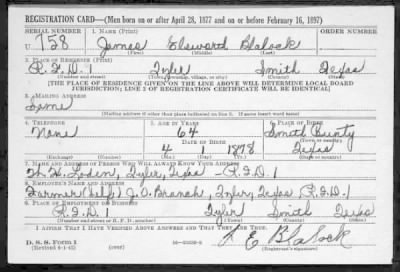 REGISTRATION CARD—(Men born on or after April 28, 1877 and on or before February 16, 1897)
SERIAL NUMBER 1. NAME (Print) ORDER NUMBER
U 758 James Elsworth Blalock
(First) (Middle) (Last)
2. PLACE OF RESIDENCE (Print)
R.F.D. 1 Tyler Smith Texas
(Number and street) (Town, township, village, or city) (County) (State)
[THE PLACE OF RESIDENCE GIVEN ON THE LINE ABOVE WILL DETERMINE LOCAL BOARD
JURISDICTION; LINE 2 OF REGISTRATION CERTIFICATE WILL BE IDENTICAL]
3. MAILING ADDRESS
Same
[Mailing address if other than place indicated on line 2. If same insert word same]
4. TELEPHONE 5. AGE IN YEARS 6. PLACE OF BIRTH
None 64 Smith County
DATE OF BIRTH (Town or county)
4 1 1878 Texas
(Exchange) (Number) (Mo.) (Day) (Yr.) (State or country)
7. NAME AND ADDRESS OF PERSON WHO WILL ALWAYS KNOW YOUR ADDRESS
Loden, Tyler, Texas - R.F.D. 1
8. EMPLOYER'S NAME AND ADDRESS
Farmer (Self) J.O. Branch, Tyler, Texas R.F.D. 1
9. PLACE OF EMPLOYMENT OR BUSINESS
R.F.D. 1 Tyler Smith Texas
(Number and street or R. F. D. number) (Town) (County) (State)
I AFFIRM THAT I HAVE VERIFIED ABOVE ANSWERS AND THAT THEY ARE TRUE.
J E Blalock
D. S. S. Form 1
(Revised 4-1-42) (over) (Registrant's signature)